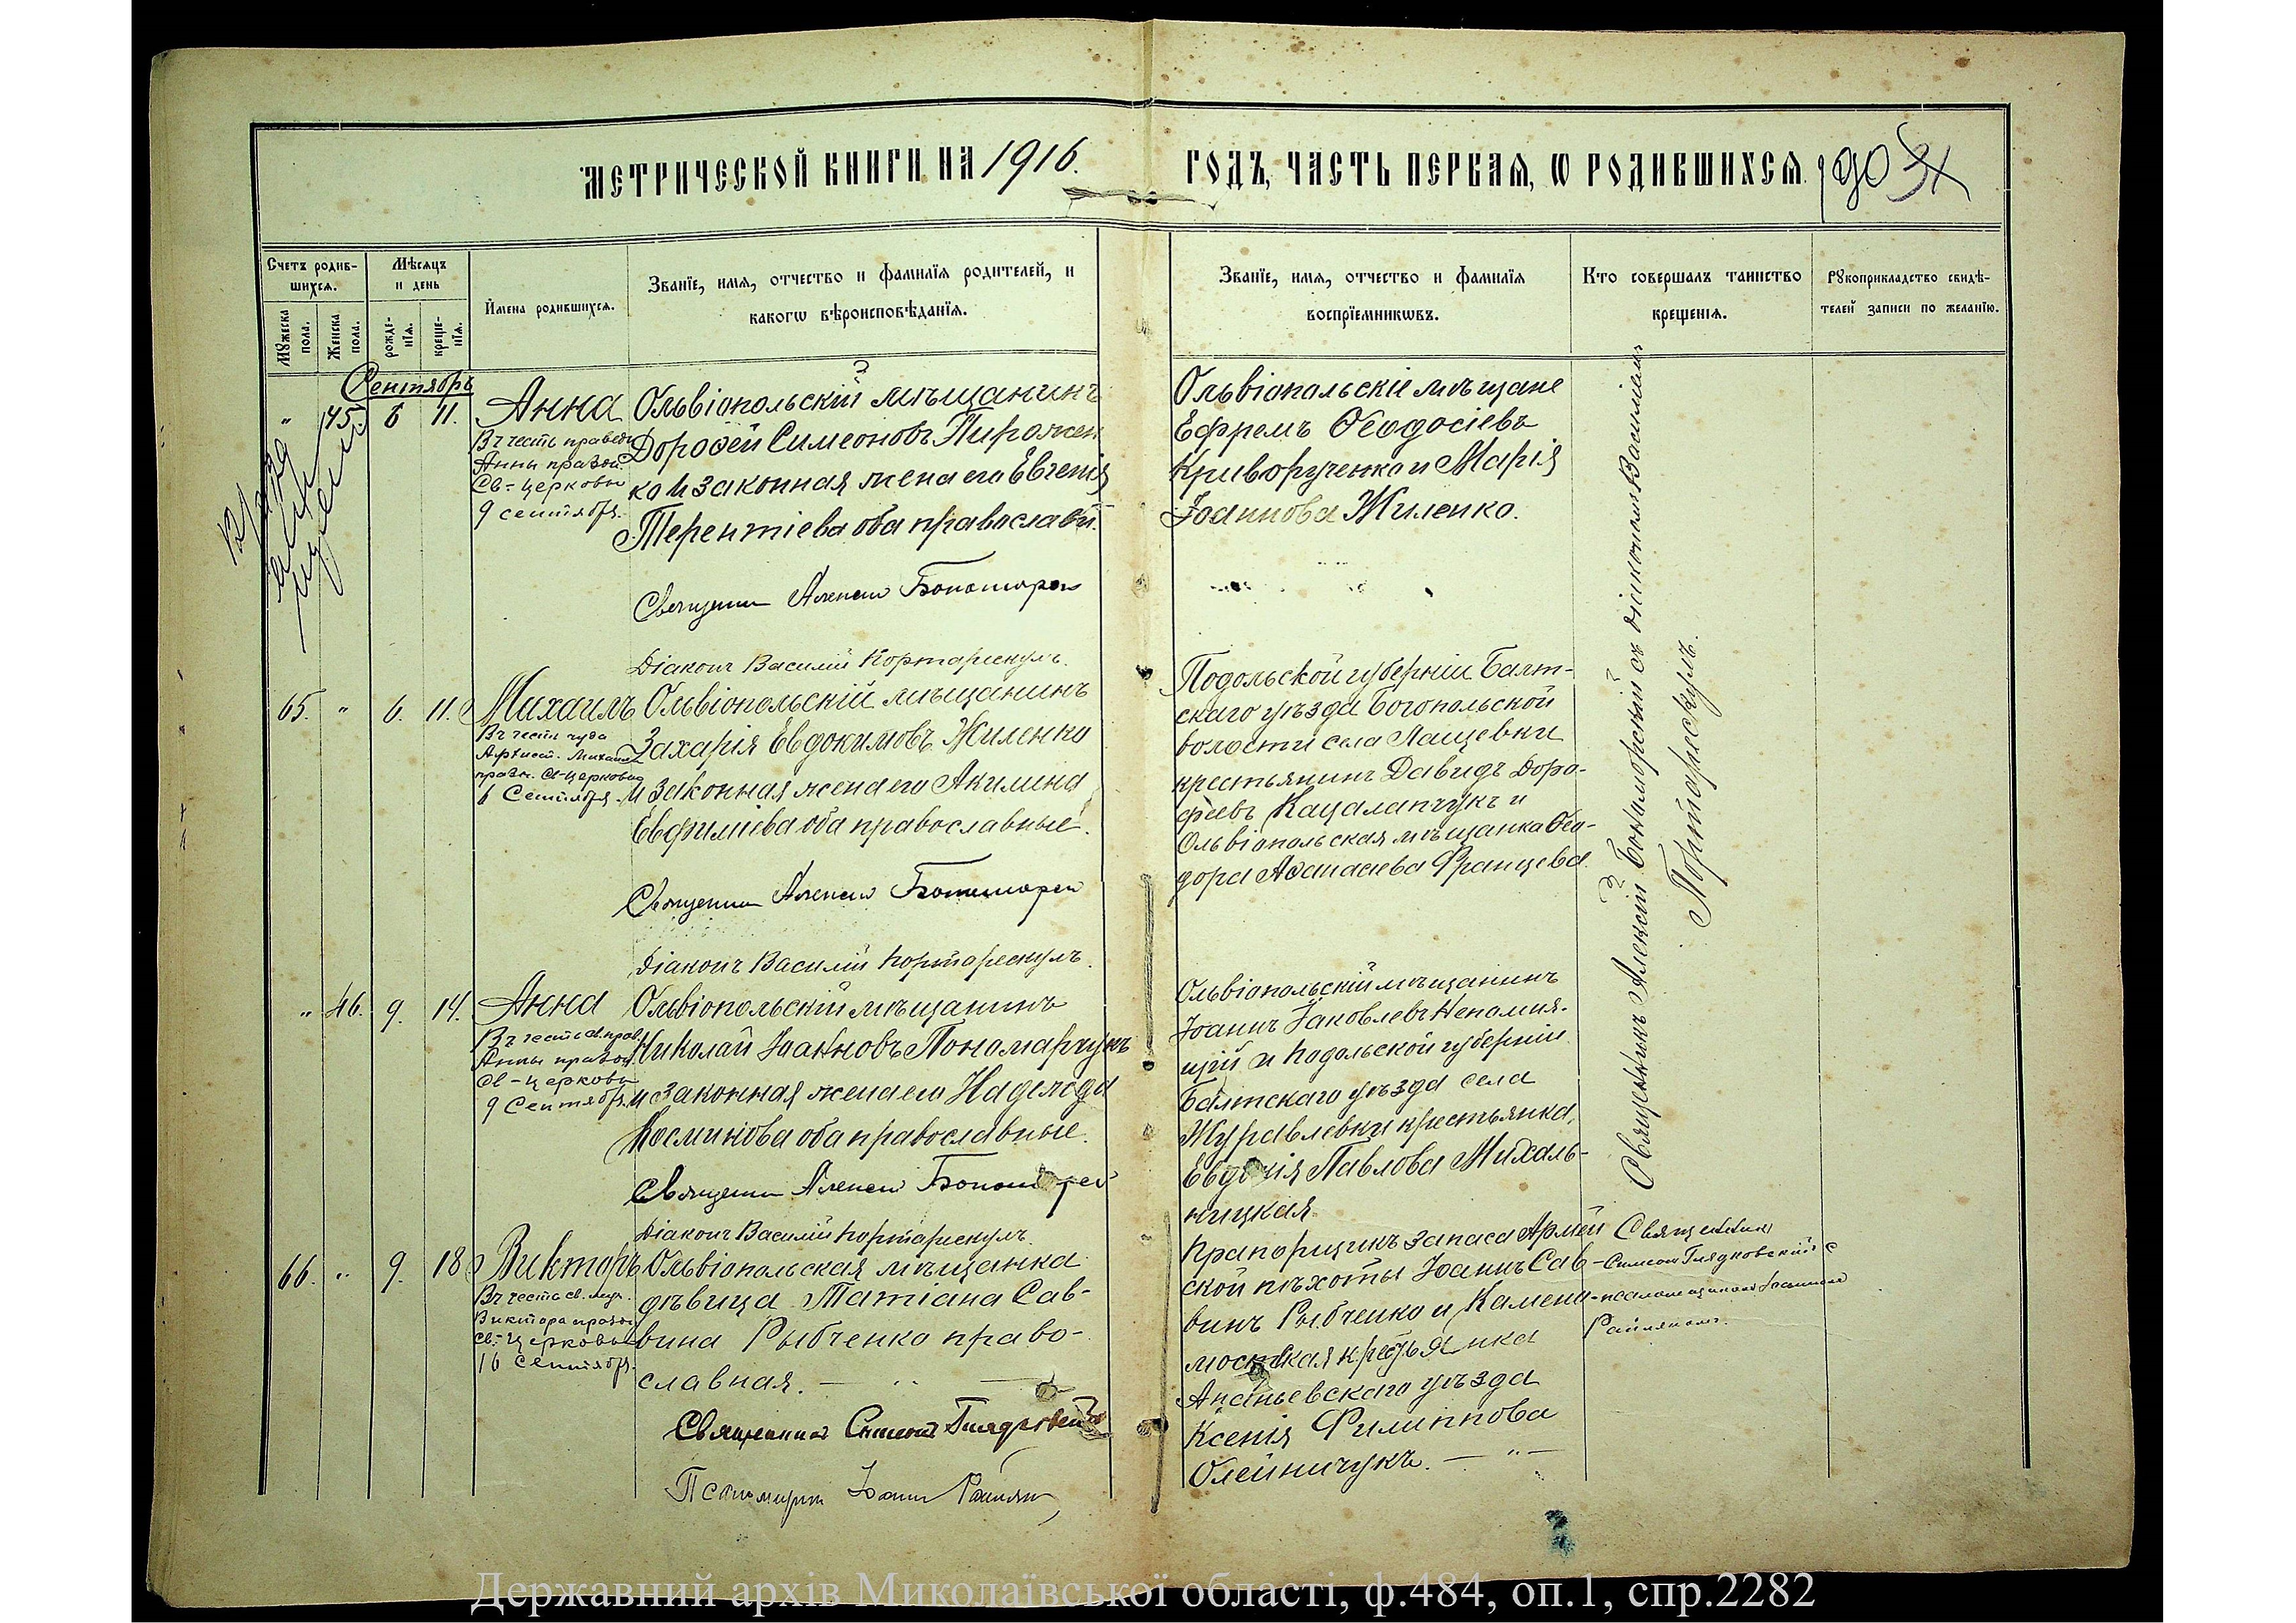 МЕТРИЧЕСКОЙ КНИГИ НА 1916.
ГОДЪ, ЧАСТЬ ПЕРВАЯ, Ѡ РОДИВШИХСЯ
Счетъ родив-
шихся.
Мужеска
пола.
Женска
пола.
Мѣсяцъ
и день
рожде-
нія.
креще-
нія.
Имена родившихся.
Званіе, имя, отчество и фамилія родителей, и
какогѡ вѣроисповѣданія.
Званіе, имя, отчество и фамилія
воспріемникѡвъ.
Кто совершалъ таинство
крещенія.
Рꙋкоприкладство свидѣ-
телей записи по желанію.
Сентябрь
„ 45. 6 11. Анна
Въ честь правед.
Анны празд.
Св-церковью
9 сентября.
Ольвіопольскій мѣщанинъ
Дороѳей Симеоновъ Пирожен
ко и законная жена его Евгенія
Терентіева оба православн.
Священник Алексей
Діаконъ Василій Портарескулъ.
Ольвіопольскіе мѣщане
Ефремъ Ѳеодосіевъ
Криворученко и Марія
Іоаннова Жиленко.
65. „ 6. 11. Михаилъ
Въ честь чуда
Архист. Михаила
празн. Св-церковью
6 Сентября.
Ольвіопольскій мѣщанинъ
Захарія Евдокимовъ Жиленко
и законная жена его Акилина
Евфиміева оба православные.
Священник Алексей
Діаконъ Василій Портарескулъ.
Подольской губерніи Балт-
скаго уѣзда Богопольской
волости села Лащевки
крестьянинъ Давидъ Доро-
феевъ Кацалапчукъ и
Ольвіопольская мѣщанка Ѳео-
дора Аѳанасіева Францева.
„ 46. 9. 14. Анна
Въ честь св. прав.
Анны празд.
Св-церковью
9 Сентября.
Ольвіопольскій мѣщанинъ
Николай Іоанновъ Пономарчукъ
и законная жена его Надежда
Косминова оба православные.
Священник Алексей
Діаконъ Василій Портарескулъ.
Ольвіопольскій мѣщанинъ
Іоаннъ Іаковлевъ Непомня-
щій и Подольской губерніи
Балтскаго уѣзда села
Журавлевки крестьянка
Евдокія Павлова Михаль-
ницкая.
Священникъ Алексій с діакономъ Василіемъ
Портарескулъ.
66. „ 9. 18 Викторъ
Въ честь св. муч.
Виктора празд.
Св-Церковью
16 Сентября.
Ольвіопольская мѣщанка
дѣвица Татіана Сав-
вина Рыбченко право-
славная.
Священникъ Симеонъ Глядковскій
Псаломщик Іоанн
Прапорщикъ запаса Армей
ской пѣхоты Іоаннъ Сав-
винъ Рыбченко и Каменно-
мостская крестьянка
Ананьевскаго уѣзда
Ксенія Филиппова
Олейничукъ.
Священникъ
Симеонъ Глядковскій с
псаломщикомъ Іоанномъ
Державний архів Миколаївської області, ф.484, оп.1, спр.2282